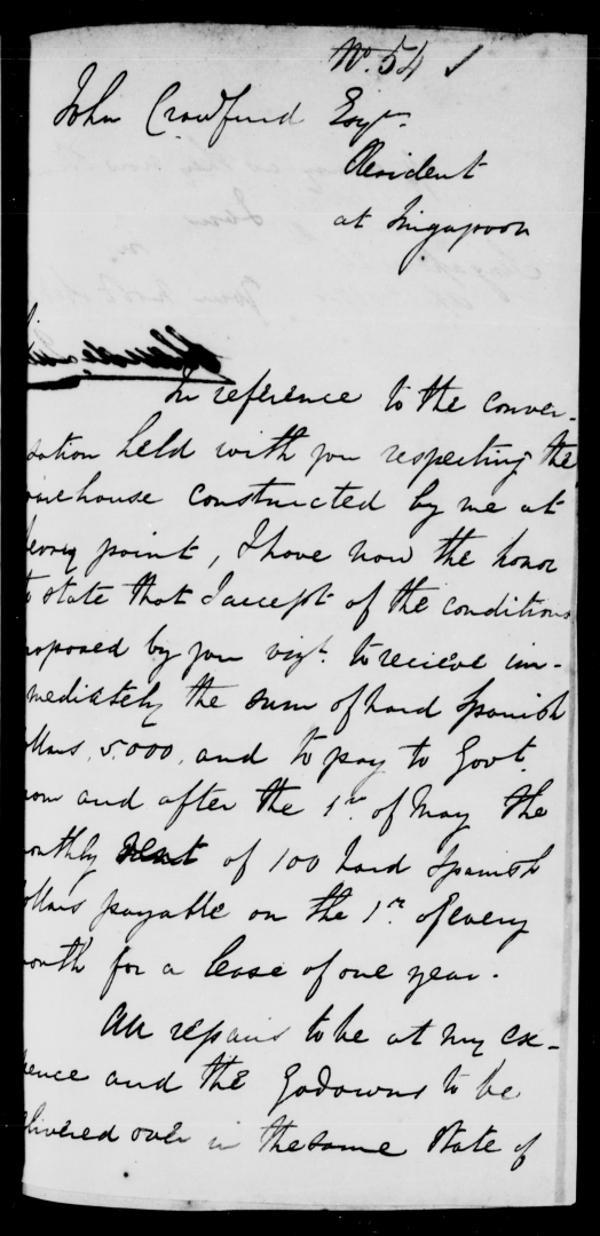 No. 54 ✓
John Crawfurd Esqr.
Resident
at Singapoor
In reference to the conver-
sation held with you respecting the
warehouse constructed by me at
ferry point, I have now the honor
to state that I accept of the conditions
roposed by you vizt. to recieve im-
mediately the sum of hard Spanish
ollars 5.000. and to pay to Govt.
rom and after the 1st. of May the
onthly rent of 100 hard Spanish
ollars payable on the 1st. of every
onth for a lease of one year.
All repairs to be at my ex-
pence and the Godowns to be
elivered over in the same state of